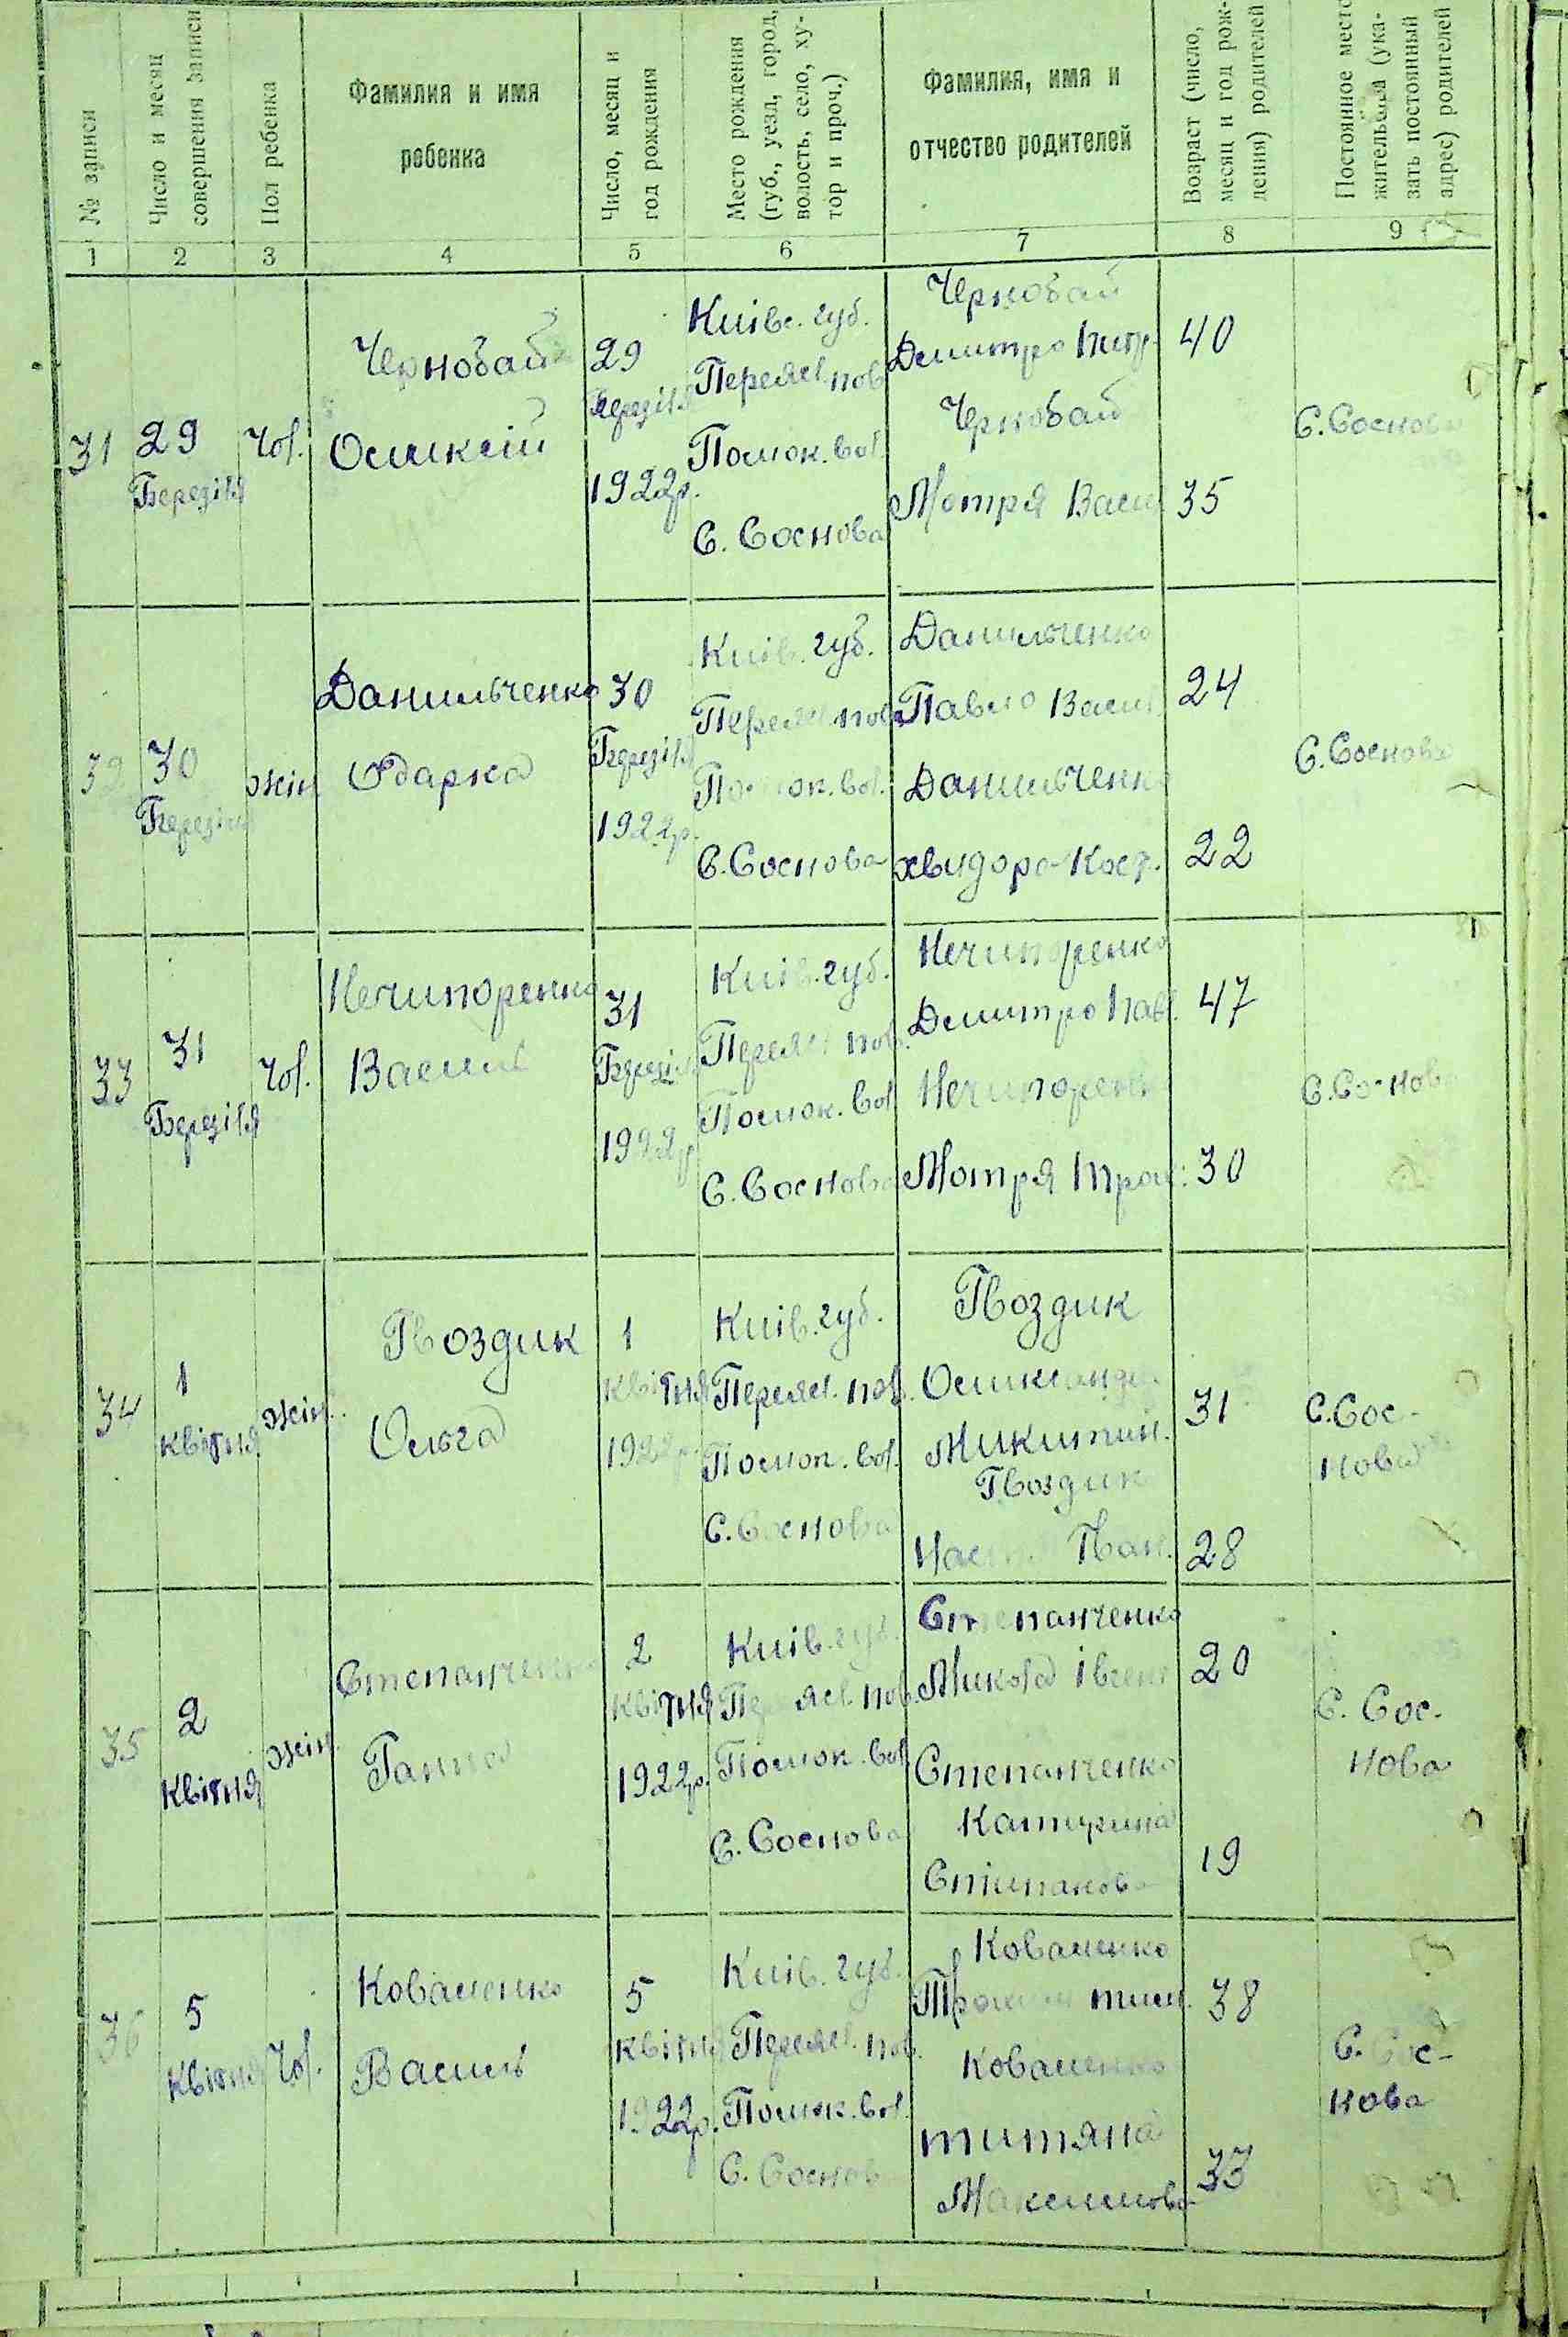 № записи
Число и месяц
совершения записи
Пол ребенка
Фамилия и имя
ребенка
Число, месяц и
год рождения
Место рождения
(губ., уезд, город,
волость, село, ху-
тор и проч.)
Фамилия, имя и
отчество родителей
Возраст (число,
месяц и год рож-
дения) родителей
Постоянное место
жительства (ука-
зать постоянный
адрес) родителей
1 2 3 4 5 6 7 8 9
31
29
Березіля
Чол.
Чорновай
Оликсій
29
Березіля
1922р.
Киівс. губ.
Переясл. пов.
Помок. вол.
С. Соснова
Чорновай
Дмитро Питр.
Чорновай
Мотря Васи
40
35
С. Соснова
32
30
Березіля
жін
Данильченко
Одарка
30
Березіля
1922р.
Київ. губ.
Переясл. пов.
Помок. вол.
С. Соснова
Данильченко
Павло Васил.
Данильченко
Хвидора Кост.
24
22
С. Соснова
33
31
Березіля
Чол.
Нечипоренко
Василь
31
Березіля
1922р
Київ. губ.
Переясл. пов.
Помок. вол.
С. Соснова
Нечипоренко
Дмитро Павл.
Нечипоренко
Мотря Трох.
47
30
С. Соснова
34
1
Квітня
жін.
Гвоздик
Ольга
1
Квітня
1922р.
Київ. губ.
Переясл. пов.
Помок. вол.
С. Соснова
Гвоздик
Олександр
Микитин.
Гвоздик
Наст. Пан.
31
28
С. Сос-
нова
35
2
Квітня
жін.
Степанченко
Ганна
2
Квітня
1922р.
Київ. губ.
Переясл. пов.
Помок. вол.
С. Соснова
Степанченко
Микола
Степанченко
Катирина
Стипанова
20
19
С. Сос.
нова
36
5
Квітня
Чол.
Коваленко
Василь
5
Квітня
1922р.
Київ. губ.
Переясл. пов.
Помок. вол.
С. Соснова
Коваленко
Трохим тим.
Коваленко
титяна
Максимова
38
33
С. Сос-
нова